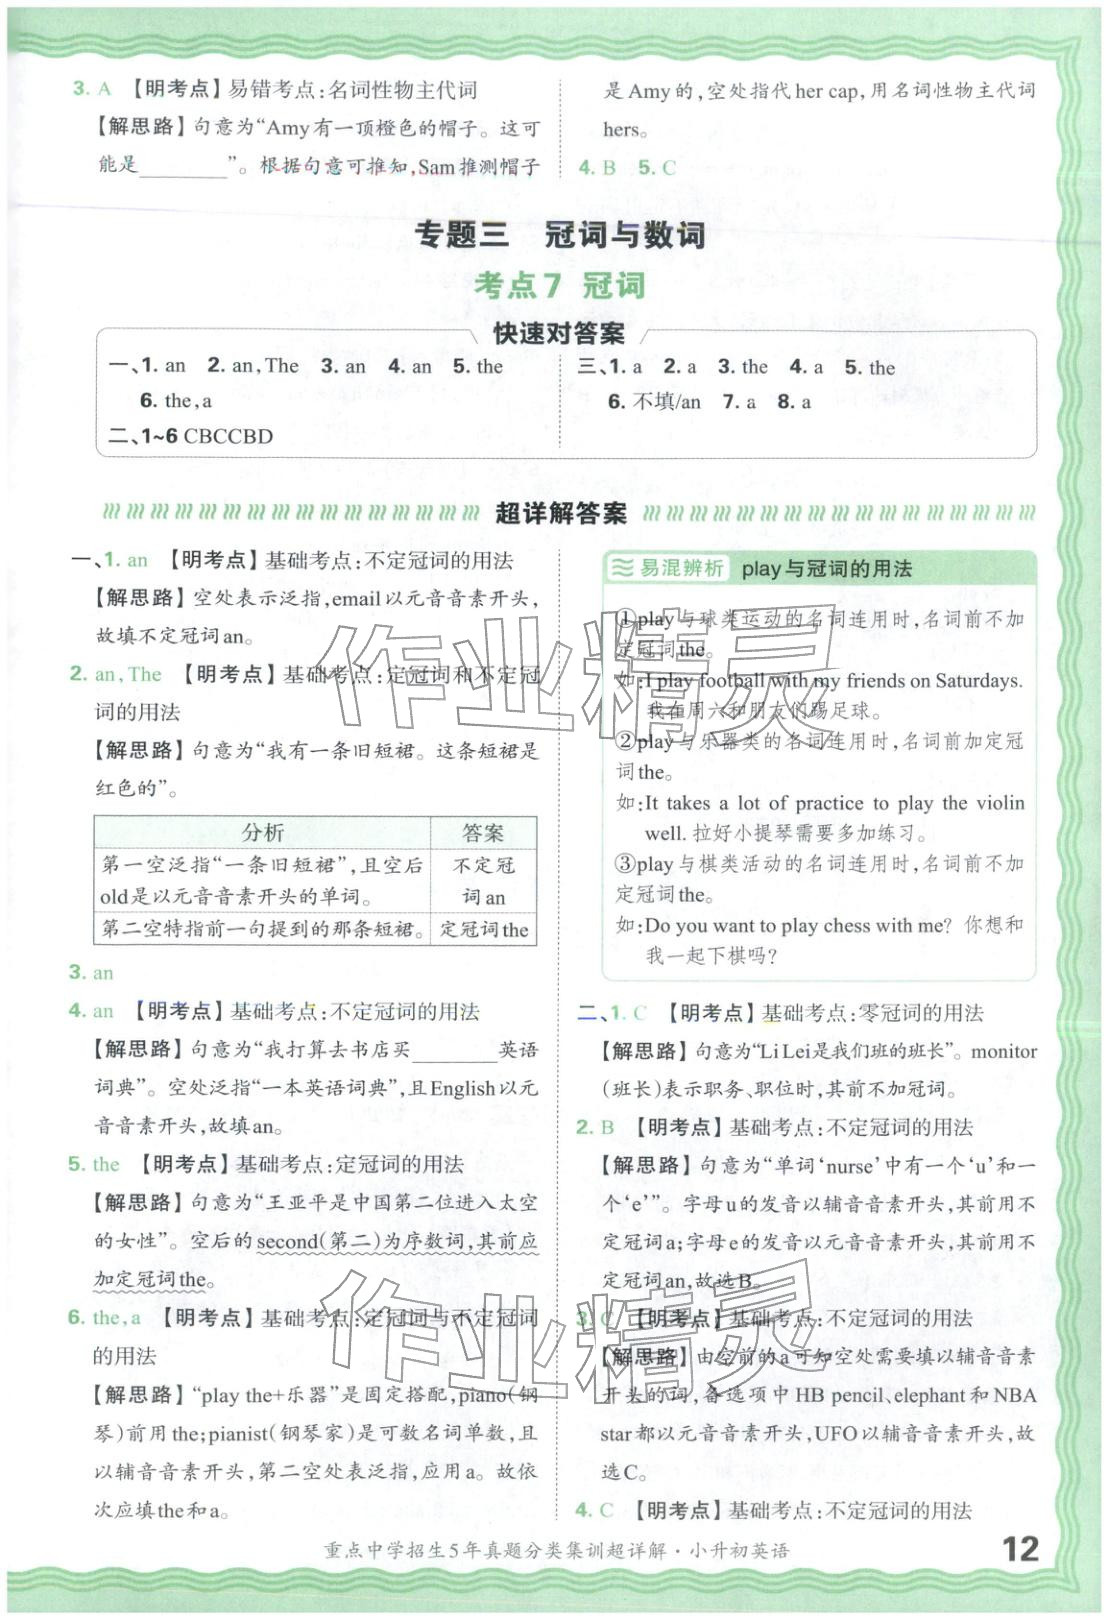 3. A 【明考点】易错考点:名词性物主代词
【解思路】句意为“Amy有一顶橙色的帽子。这可
能是________”。根据句意可推知,Sam推测帽子
是Amy的,空处指代her cap,用名词性物主代词
hers。
4. B 5. C
专题三 冠词与数词
考点7 冠词
快速对答案
一、1. an 2. an,The 3. an 4. an 5. the
6. the,a
二、1~6 CBCCBD
三、1. a 2. a 3. the 4. a 5. the
6. 不填/an 7. a 8. a
超详解答案
一、1. an 【明考点】基础考点:不定冠词的用法
【解思路】空处表示泛指,email以元音音素开头,
故填不定冠词an。
2. an,The 【明考点】基础考点:定冠词和不定冠
词的用法
【解思路】句意为“我有一条旧短裙。这条短裙是
红色的”。
分析 答案
第一空泛指“一条旧短裙”,且空后 不定冠
old是以元音音素开头的单词。 词an
第二空特指前一句提到的那条短裙。 定冠词the
3. an
4. an 【明考点】基础考点:不定冠词的用法
【解思路】句意为“我打算去书店买________英语
词典”。空处泛指“一本英语词典”,且English以元
音音素开头,故填an。
5. the 【明考点】基础考点:定冠词的用法
【解思路】句意为“王亚平是中国第二位进入太空
的女性”。空后的second(第二)为序数词,其前应
加定冠词the。
6. the,a 【明考点】基础考点:定冠词与不定冠词
的用法
【解思路】“play the+乐器”是固定搭配,piano(钢
琴)前用the;pianist(钢琴家)是可数名词单数,且
以辅音音素开头,第二空处表泛指,应用a。故依
次应填the和a。
易混辨析 play与冠词的用法
①play与球类运动的名词连用时,名词前不加
定冠词the。
如:I play football with my friends on Saturdays.
我在周六和朋友们踢足球。
②play与乐器类的名词连用时,名词前加定冠
词the。
如:It takes a lot of practice to play the violin
well. 拉好小提琴需要多加练习。
③play与棋类活动的名词连用时,名词前不加
定冠词the。
如:Do you want to play chess with me? 你想和
我一起下棋吗?
二、1. C 【明考点】基础考点:零冠词的用法
【解思路】句意为“Li Lei是我们班的班长”。monitor
(班长)表示职务、职位时,其前不加冠词。
2. B 【明考点】基础考点:不定冠词的用法
【解思路】句意为“单词‘nurse’中有一个‘u’和一
个‘e’”。字母u的发音以辅音音素开头,其前用不
定冠词a;字母e的发音以元音音素开头,其前用
不定冠词an,故选B。
3. C 【明考点】基础考点:不定冠词的用法
【解思路】由空前的a可知空处需要填以辅音音素
开头的词,备选项中HB pencil、elephant和NBA
star都以元音音素开头,UFO以辅音音素开头,故
选C。
4. C 【明考点】基础考点:不定冠词的用法
作业精灵
作业精灵
重点中学招生5年真题分类集训超详解·小升初英语
12